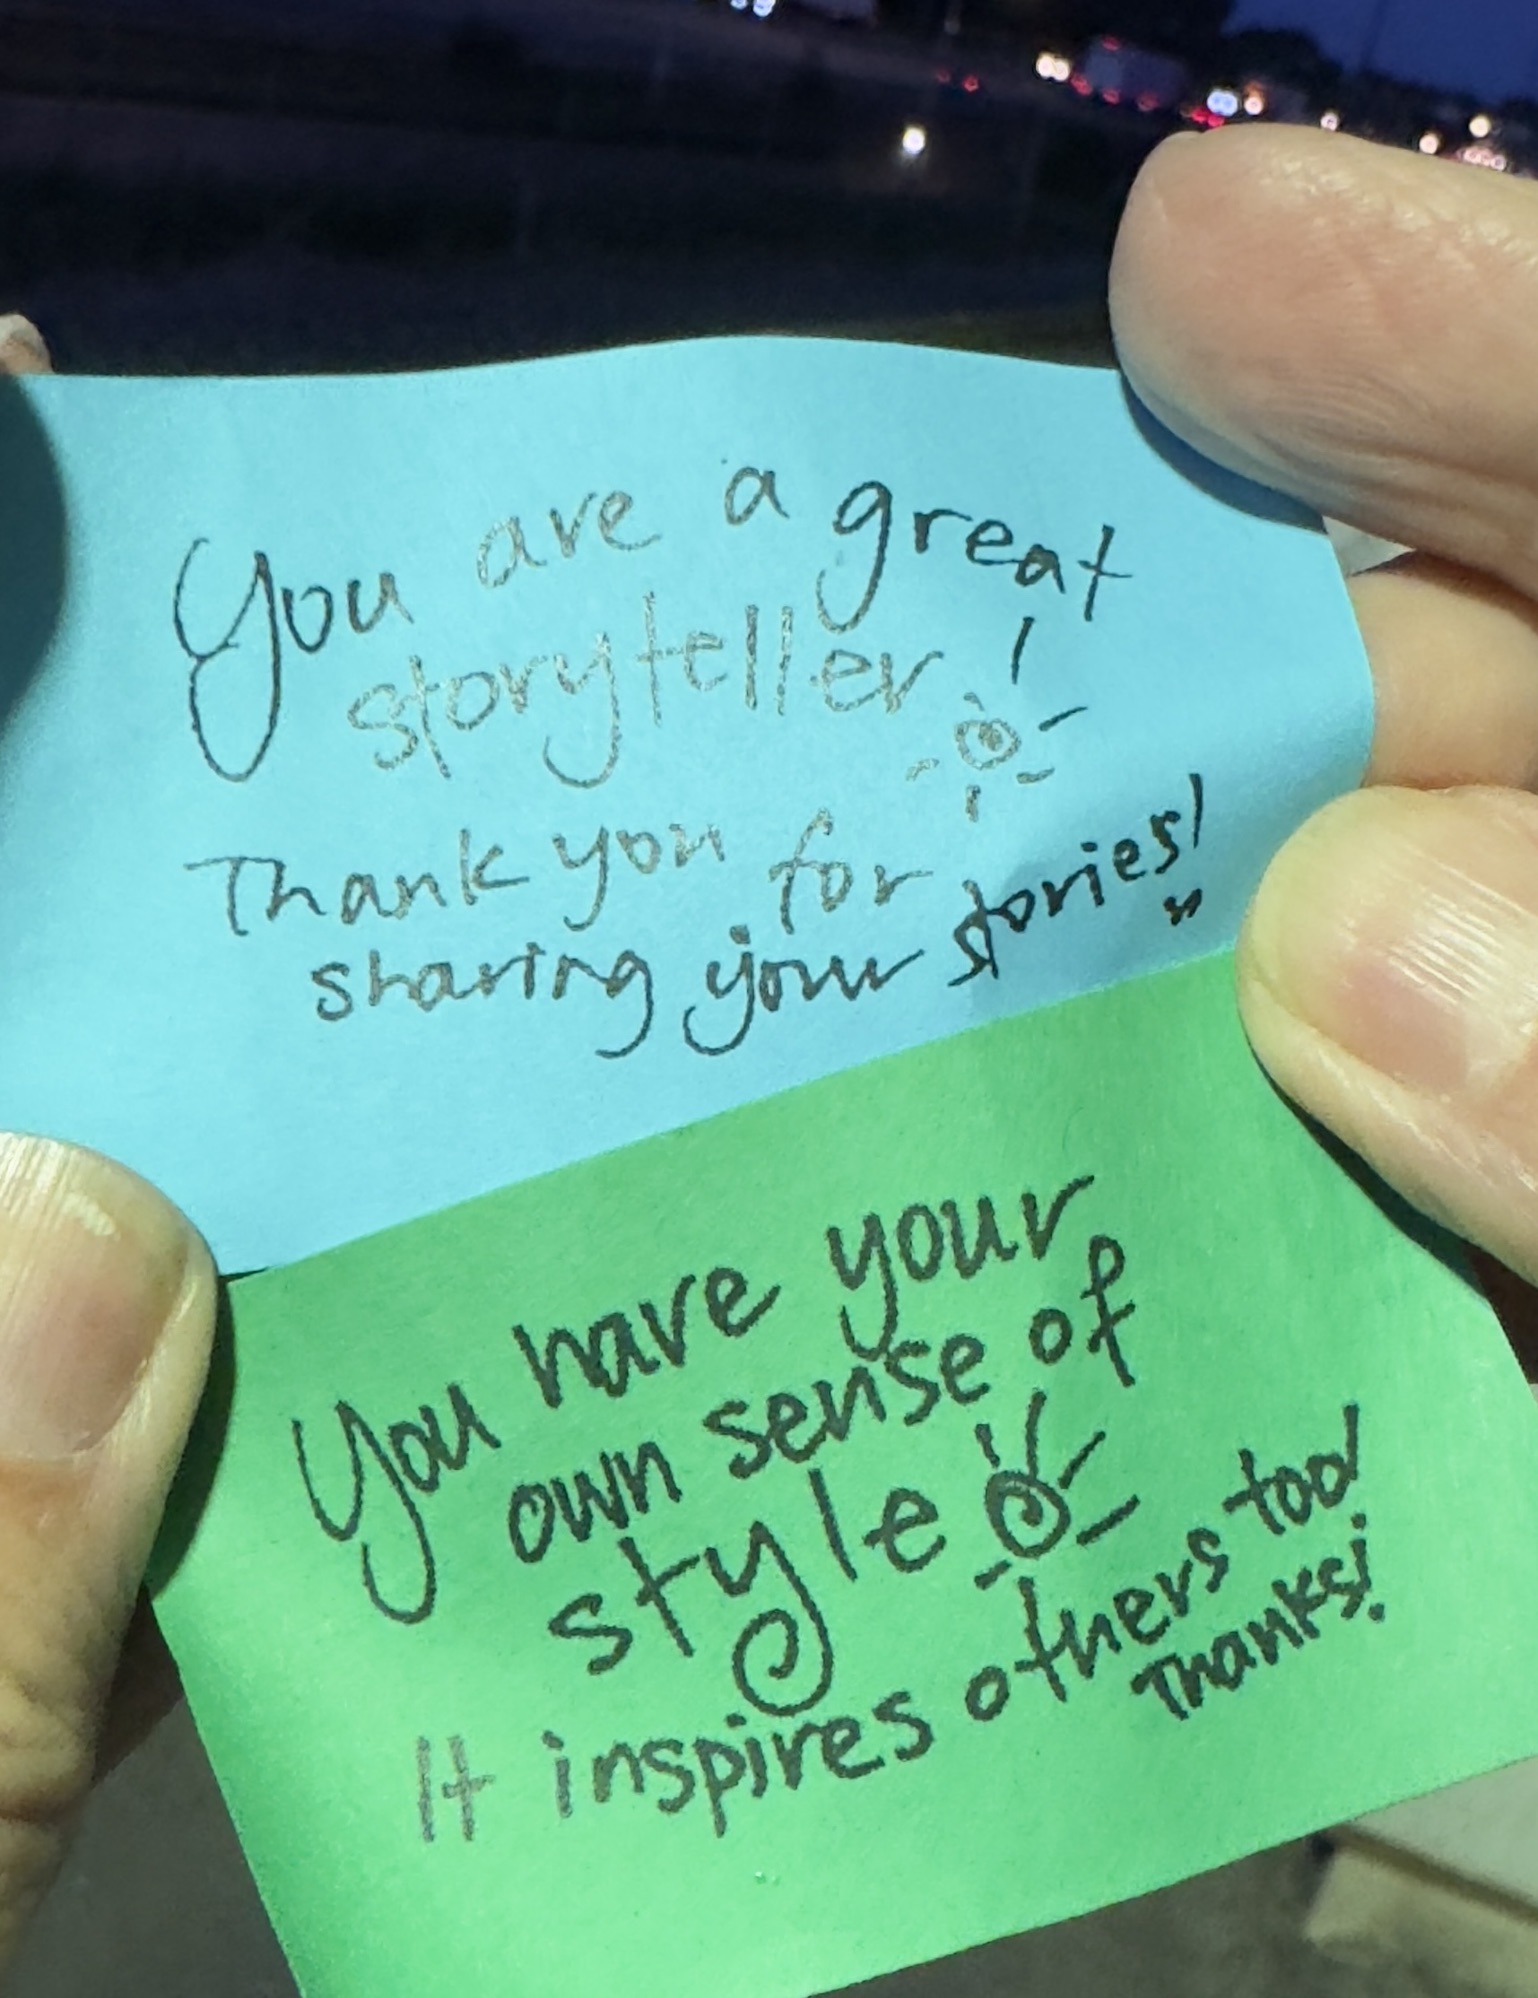 You are a great
storyteller!
Thank you for
sharing your stories!
You have your
own sense of
style
It inspires others too!
Thanks!